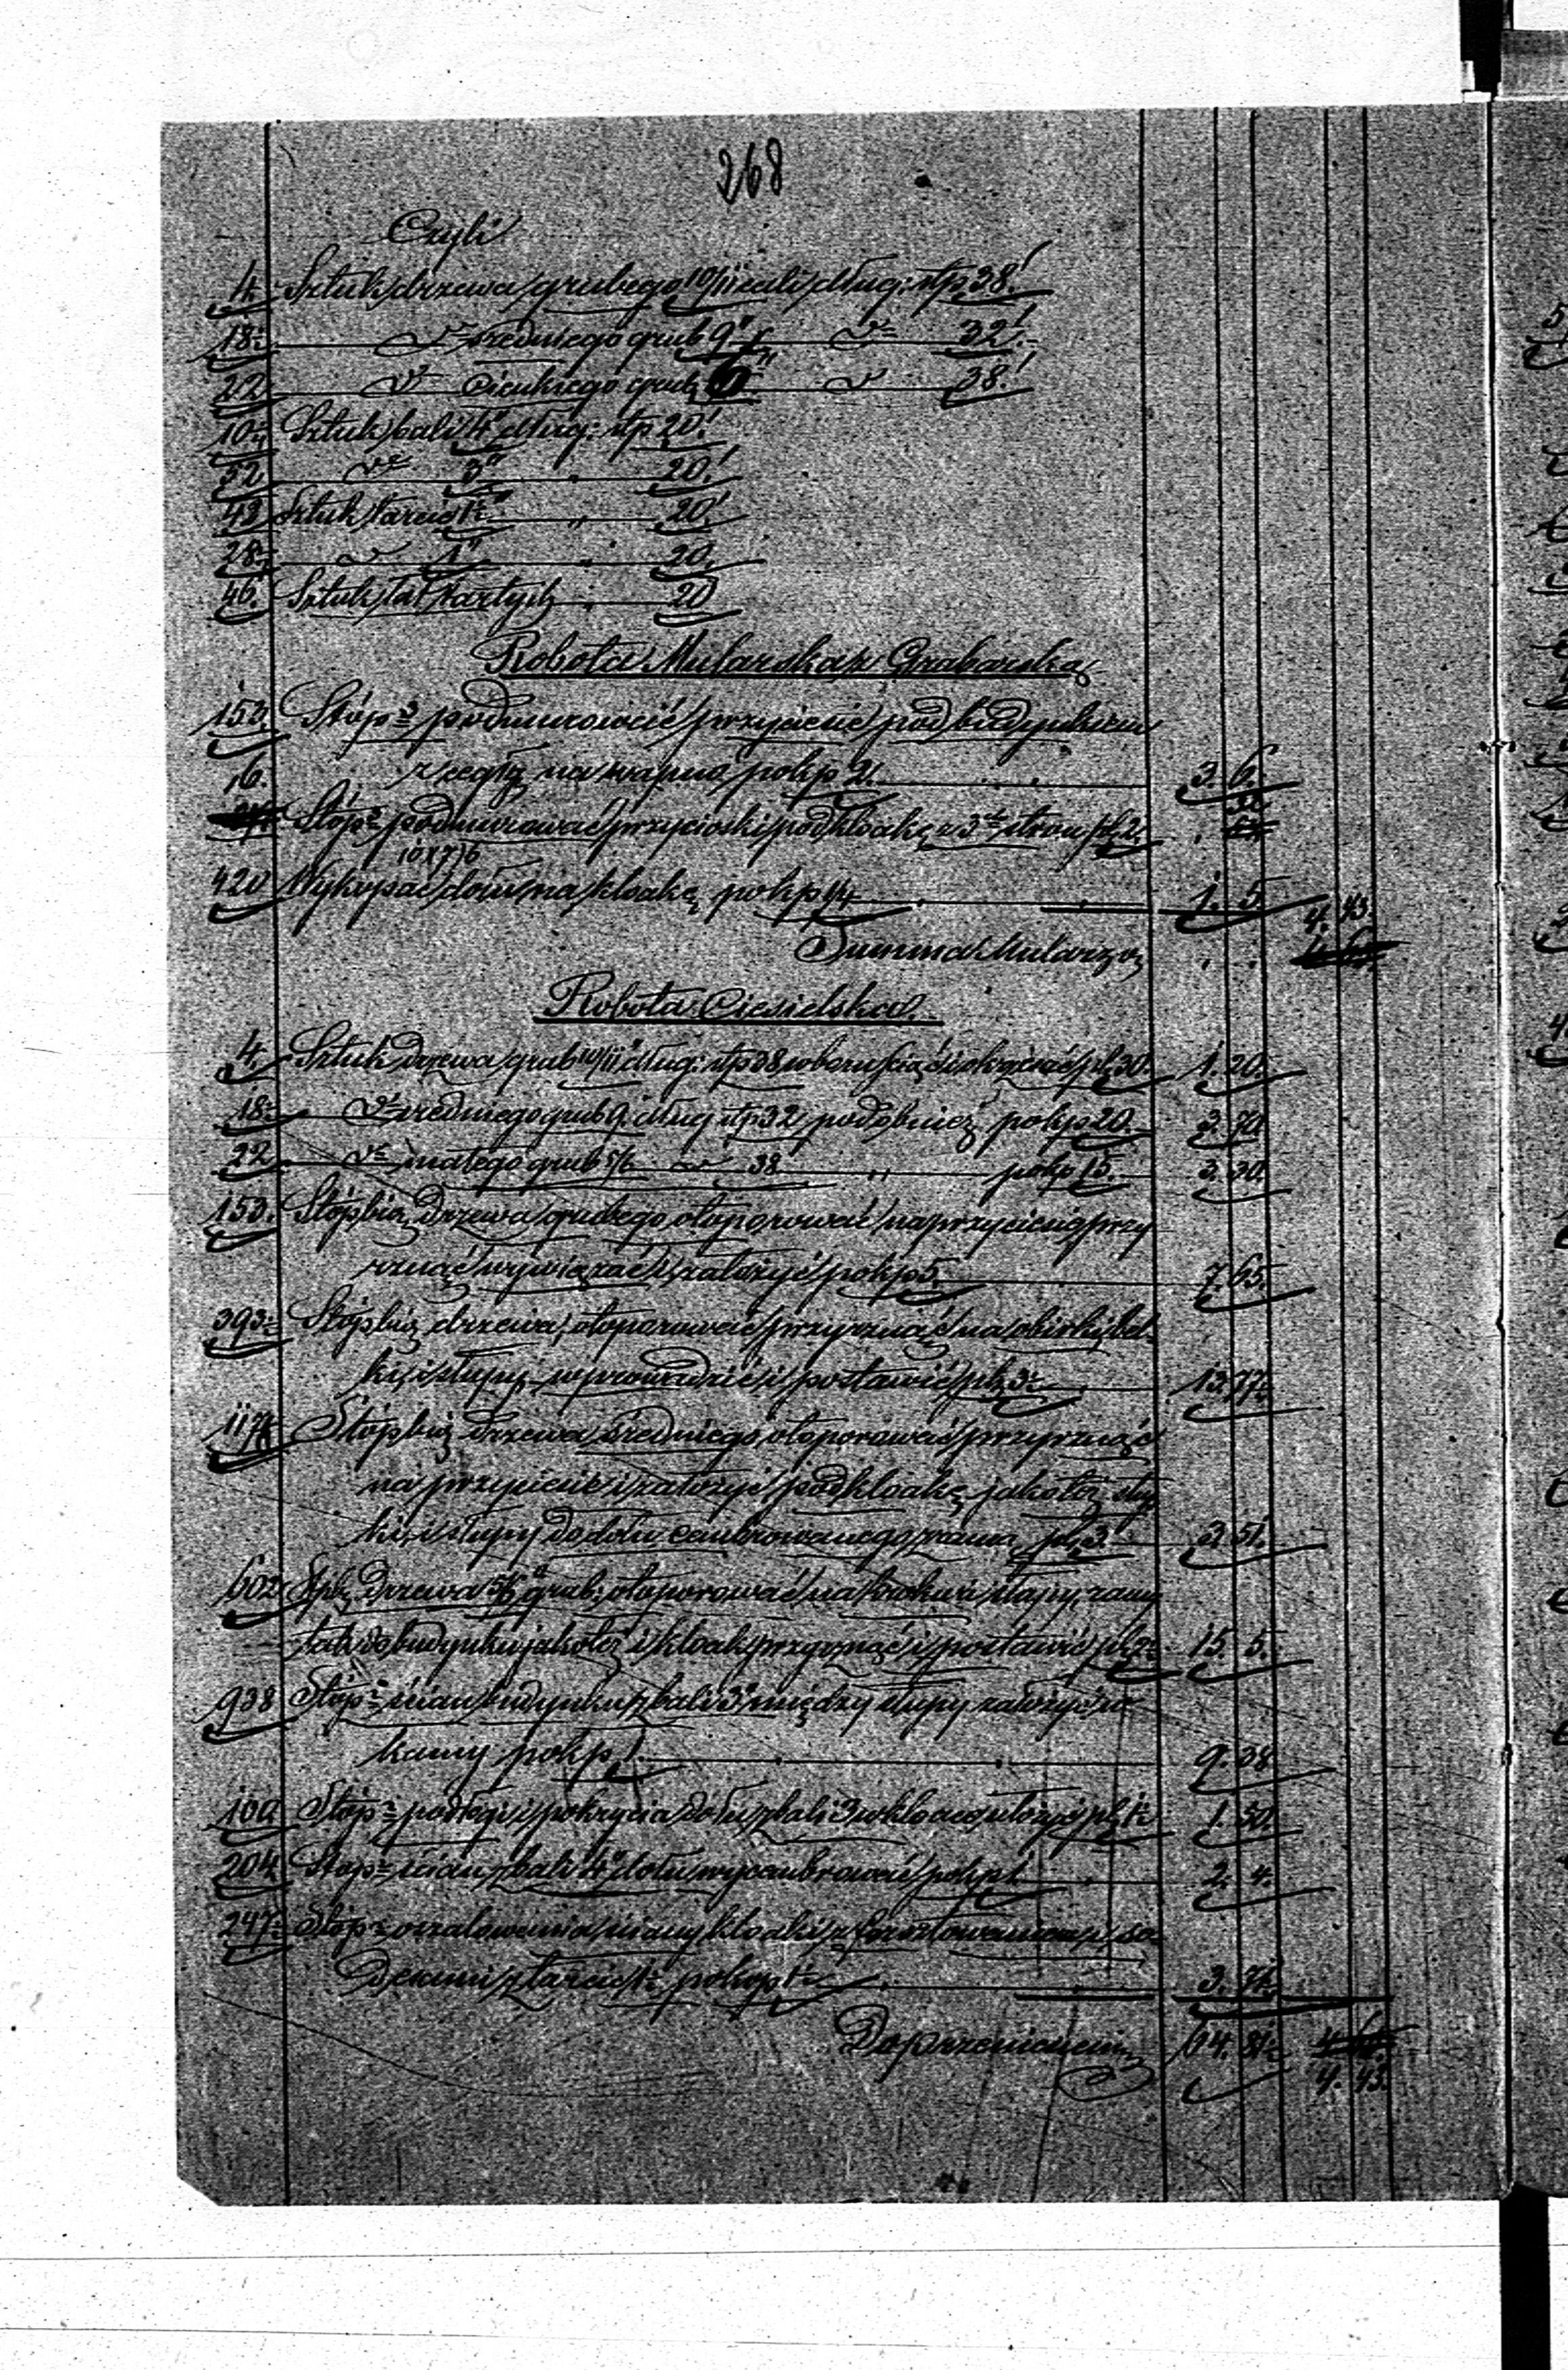 268
Czyli
4. Sztuk drzewa grubego 10/11 cali dług: stp 38'
18. dto średniego grub 9" dto 32'
22 dto cieńkiego grub dto 38'
10. Sztuk bali 4" dług: stp 20'
52 dto 3" " 20'
43 Sztuk tarcic 1½" " 20'
28. dto 1" " 20.
46. Sztuk łat tartych " 20
Robota Mularska z Grabarską
153. Stóp podmurować przycieśie pod budynkiem
z cegły na wapno po kp 2. 3. 6.
16. Stóp podmurować przycioski pod kloakę z 3ch stron pk 2. . 32
10 x 7 x 6
420 Wykopać dołu na kloakę po kp ¼ 1. 5.
Summa Mularz. 4. 43.
Robota Ciesielska.
4. Sztuk drzewa grub 10/11" dług: stp 38 w i pk 30. 1. 20.
18. dto średniego grub 9. dług stp 32 podobnież po kp 20. 3. 70
22 dto małego grub 5/6 dto 38 " po kp 15. 3. 30.
153. Stóp bież. drzewa grubego otoporować na przycieśie przy
rznąć wywiązać i założyć po kp 5. 7. 65.
393. Stóp bież drzewa otoporować przyrznąć na bel-
ki, i słupy, wyprowadzić i postawić pk 3½ 13. 77½
117. Stóp bież drzewa średniego otoporować przyrznąć
na przycieśie i założyć pod kloakę jakoteż
ki, i słupy do dołu cembrowanego pk 3. 3. 51.
602 Stp bż Drzewa 5/6" grub: otoporować na krokwie słupy, ramy
tak do budynku jakoteż i kloaki przyrznąć i postawić pk 2½ 15. 5.
938 Stóp ścian budynku z bali 3" między słupy założyć
po kp 1. 9. 38
100 Stóp podłogi i pokrycia dołu z bali 3" w kloace ułożyć pk 1½ 1. 50.
204. Stóp ścian z bali 4" dołu wycembrować po kp 1. 2. 4.
247. Stóp oszalowania ściany kloaki z
z tarcic 1½ po kop 1½ 3. 71
Do przeniesienia 64. 81½ 4. 43.